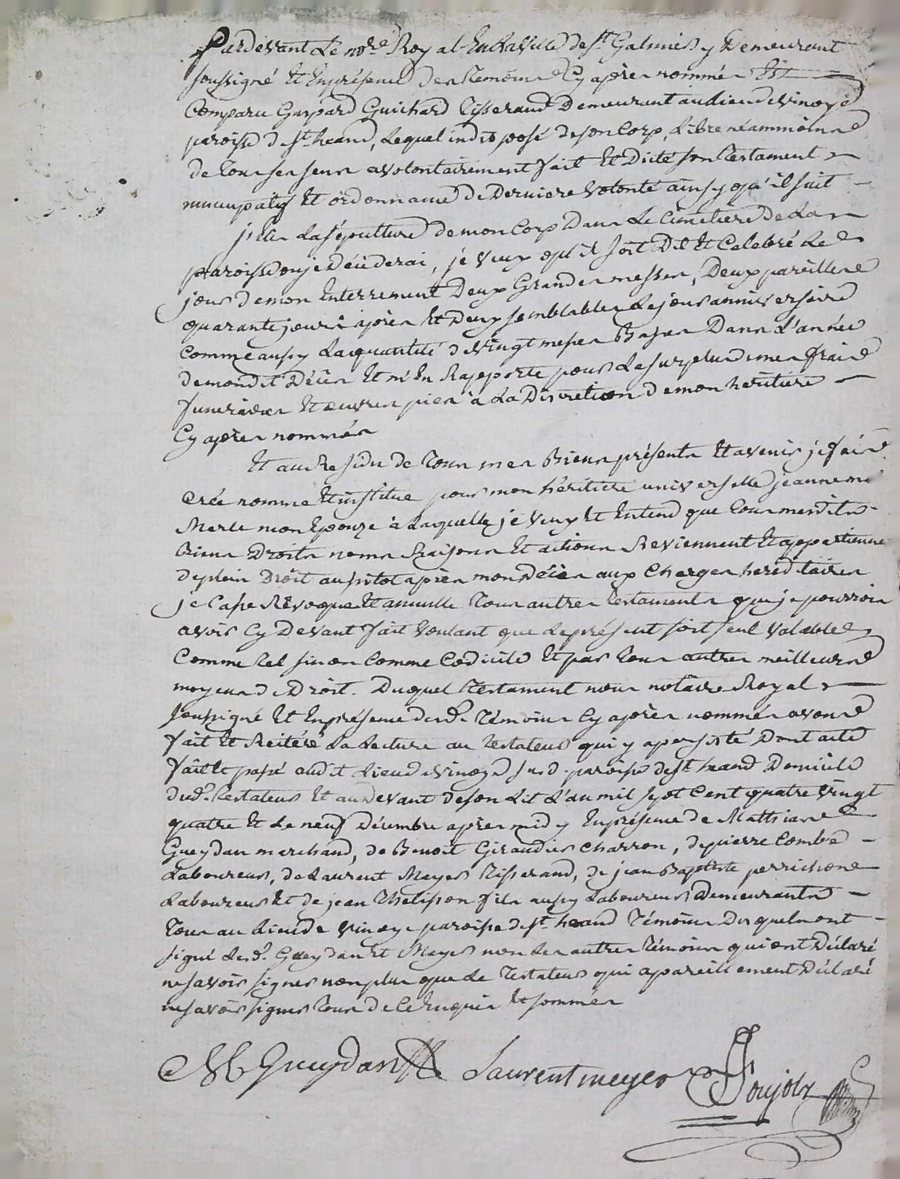 Pardevant Le no.re Royal En La ville de st Galmier y Demeurant
soussigné Et En présence des Temoins Cy après nommés Est
Comparu Gaspard Guichard Tisserand Demeurant au lieu de vinoys
paroisse de st. heand, Lequel indisposé de son Corp, Libre néammoins
de Tous ses sens a volontairement fait Et Dicté son Testament
nuncupatif Et ordonnance de Derniere volonté ainsy qu'il suit
La sépulture de mon Corp Dans Le Cimetiere de La
paroisse ou je Déciderai, je veux qu'il soit Dit Et Celebré Le
jour de mon Enterrement Deux Grandes messes, Deux pareilles
quarante jours après Et Deux semblables Le jour anniversaire
Comme aussy La quantité de vingt messes Basses Dans L'année
de mondit Décès Et m'En Raporte pour Le surplus de mes frais
funeraires Et œuvres pies à La Discretion de mon heritiere
Cy après nommée
Et au Residu de Tous mes Biens présents Et avenir je fais
Crée nomme Et institue pour mon héritiere universelle jeanne m
Merle mon Epouze à Laquelle je veux Et Entend que Tous mesdits
Biens Droits noms Raisons Et actions Reviennent Et appartienne
de plein Droit aussitot après mon Décès aux Charges hereditaires
je Casse Révoque Et annulle Tous autres Testaments que je pourrois
avoir Cy Devant fait voulant que Le présent soit seul valable
Comme Tel sinon Comme Codicile Et par Tous autres meilleurs
moyens de Droit. Duquel Testament nous notaire Royal
soussigné Et En présence des d. Témoins Cy après nommés avons
fait Et Reiteré La Lecture au Testateur qui y a persisté Dont acte
fait Et passé audit Lieu de vinoys sus d. paroisse de st heand Domicile
du d. Testateur Et au devant de son Lit L'an mil sept Cent quatre vingt
quatre Et Le neuf Décembre après midy En présence de Mathias
Gueydan marchand, de Benoit Giraudier Charron, de pierre Combe
Laboureur, de Laurent Meyer Tisserand, de jean Baptiste perrichon
Laboureur Et de jean Thelisson fils aussy Laboureur Demeurants
Tous au Lieu de vinoys paroisse de st. heand Témoins Desquels ont
signé Les d. Gueydan Et Meyer non Les autres Témoins qui ont Déclaré
ne savoir signer non plus que Le Testateur qui a pareillement Déclaré
ne savoir signer Tous de Ce Enquis Et sommés
M Gueydan Laurent meyer Ponjolz